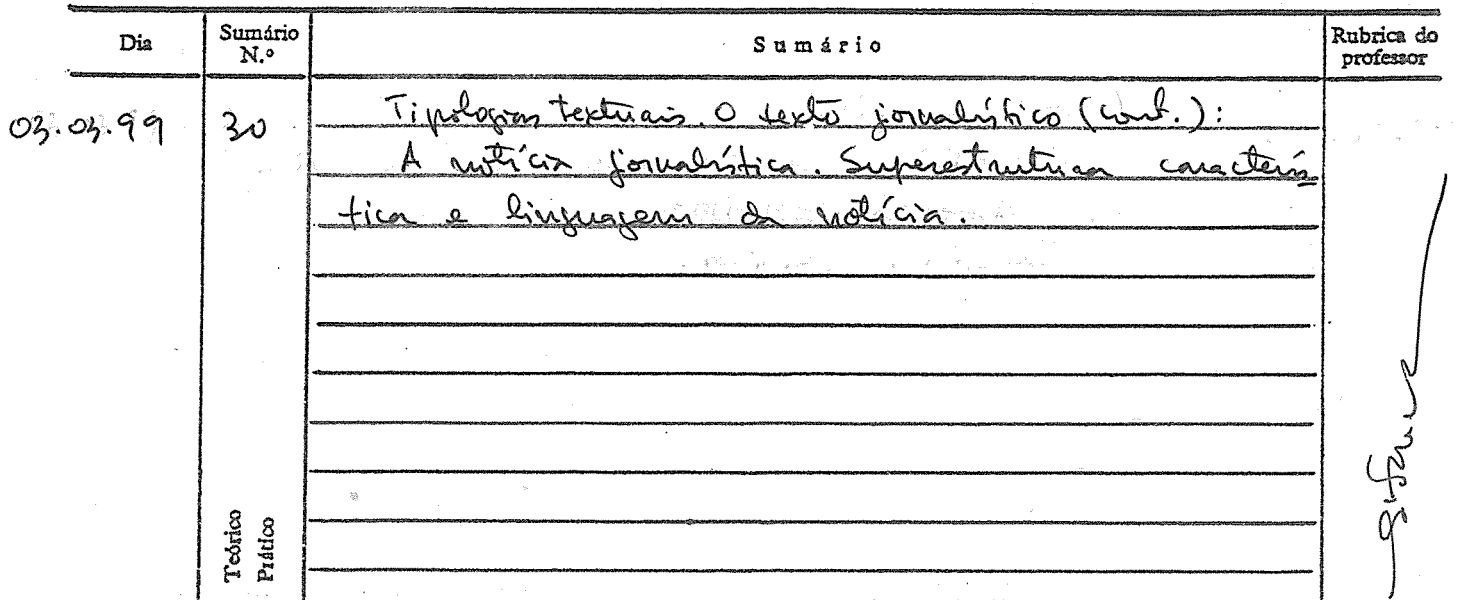 Dia
Sumário N.º
Sumário
Rubrica do professor
03.03.99
30
Tipologias textuais. O texto jornalístico (cont.):
A notícia jornalística. Superestrutura caracterís
tica e linguagem da notícia.
Teórico
Prático